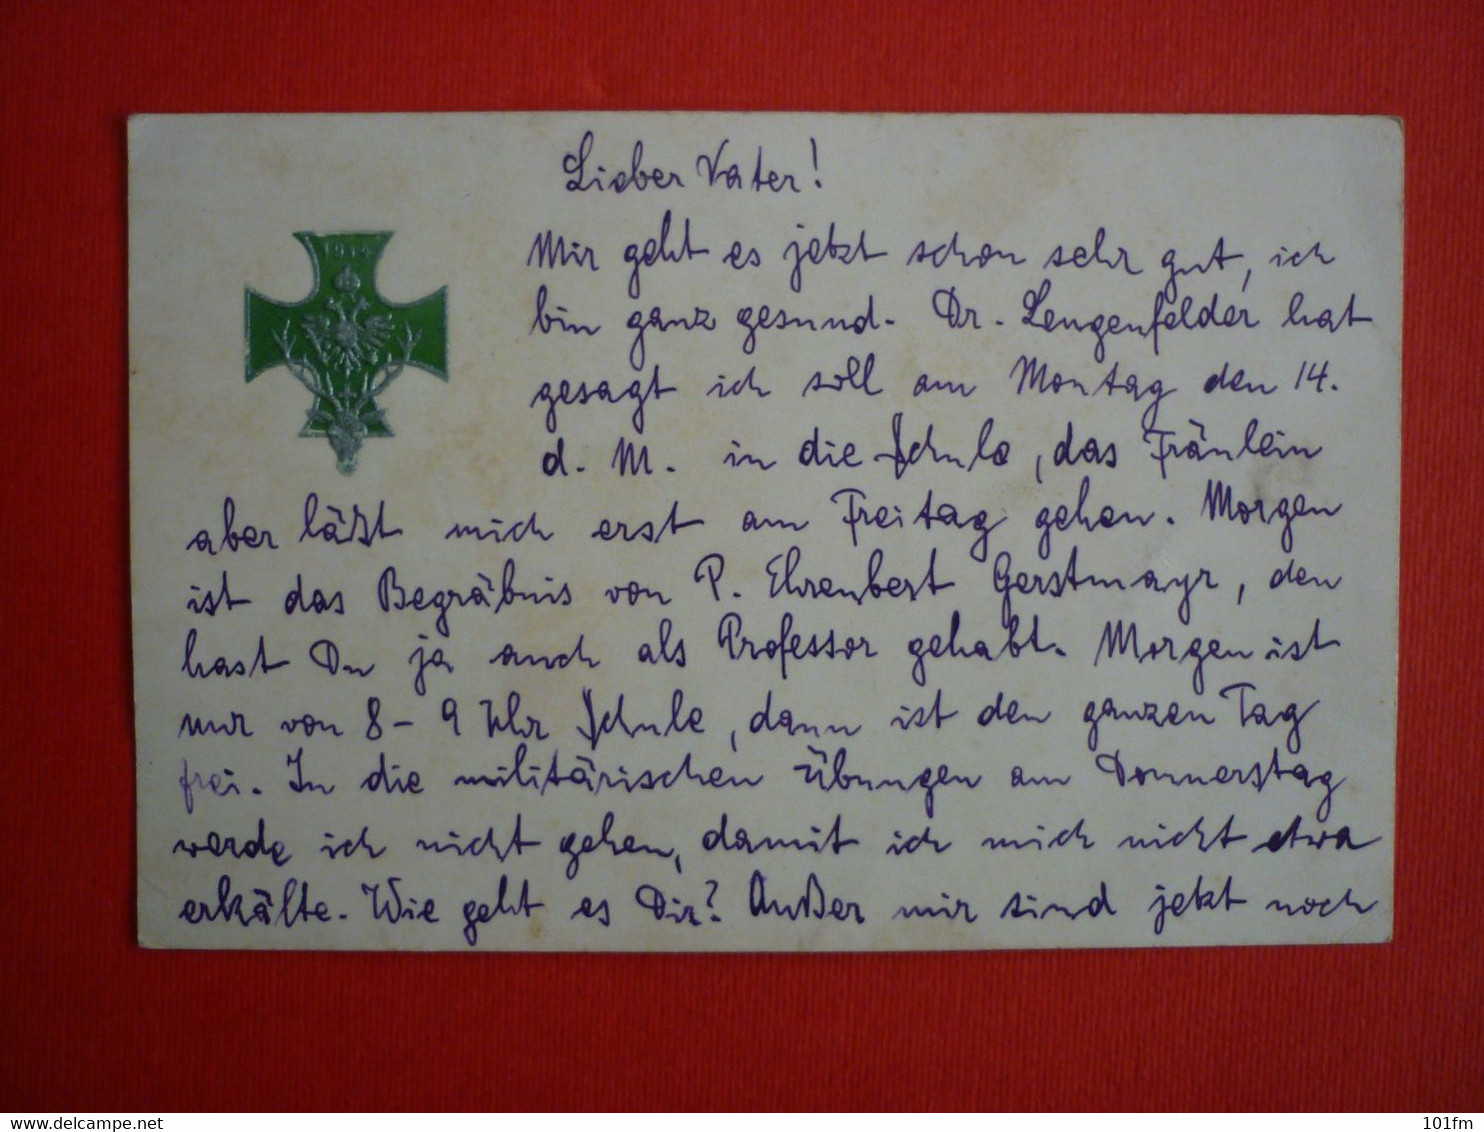 Lieber Vater!
1914
Mir geht es jetzt schon sehr gut, ich
bin ganz gesund. Dr. Lengenfelder hat
gesagt ich soll am Montag den 14.
d. M. in die Schule, das Fräulein
aber läßt mich erst am Freitag gehen. Morgen
ist das Begräbnis von P. Ehrenbert Gerstmayr, den
hast Du ja auch als Professor gehabt. Morgen ist
nur von 8 - 9 Uhr Schule, dann ist den ganzen Tag
frei. In die militärischen Übungen am Donnerstag
werde ich nicht gehen, damit ich mich nicht etwa
erkälte. Wie geht es Dir? Außer mir sind jetzt noch
delcampe.net
101fm